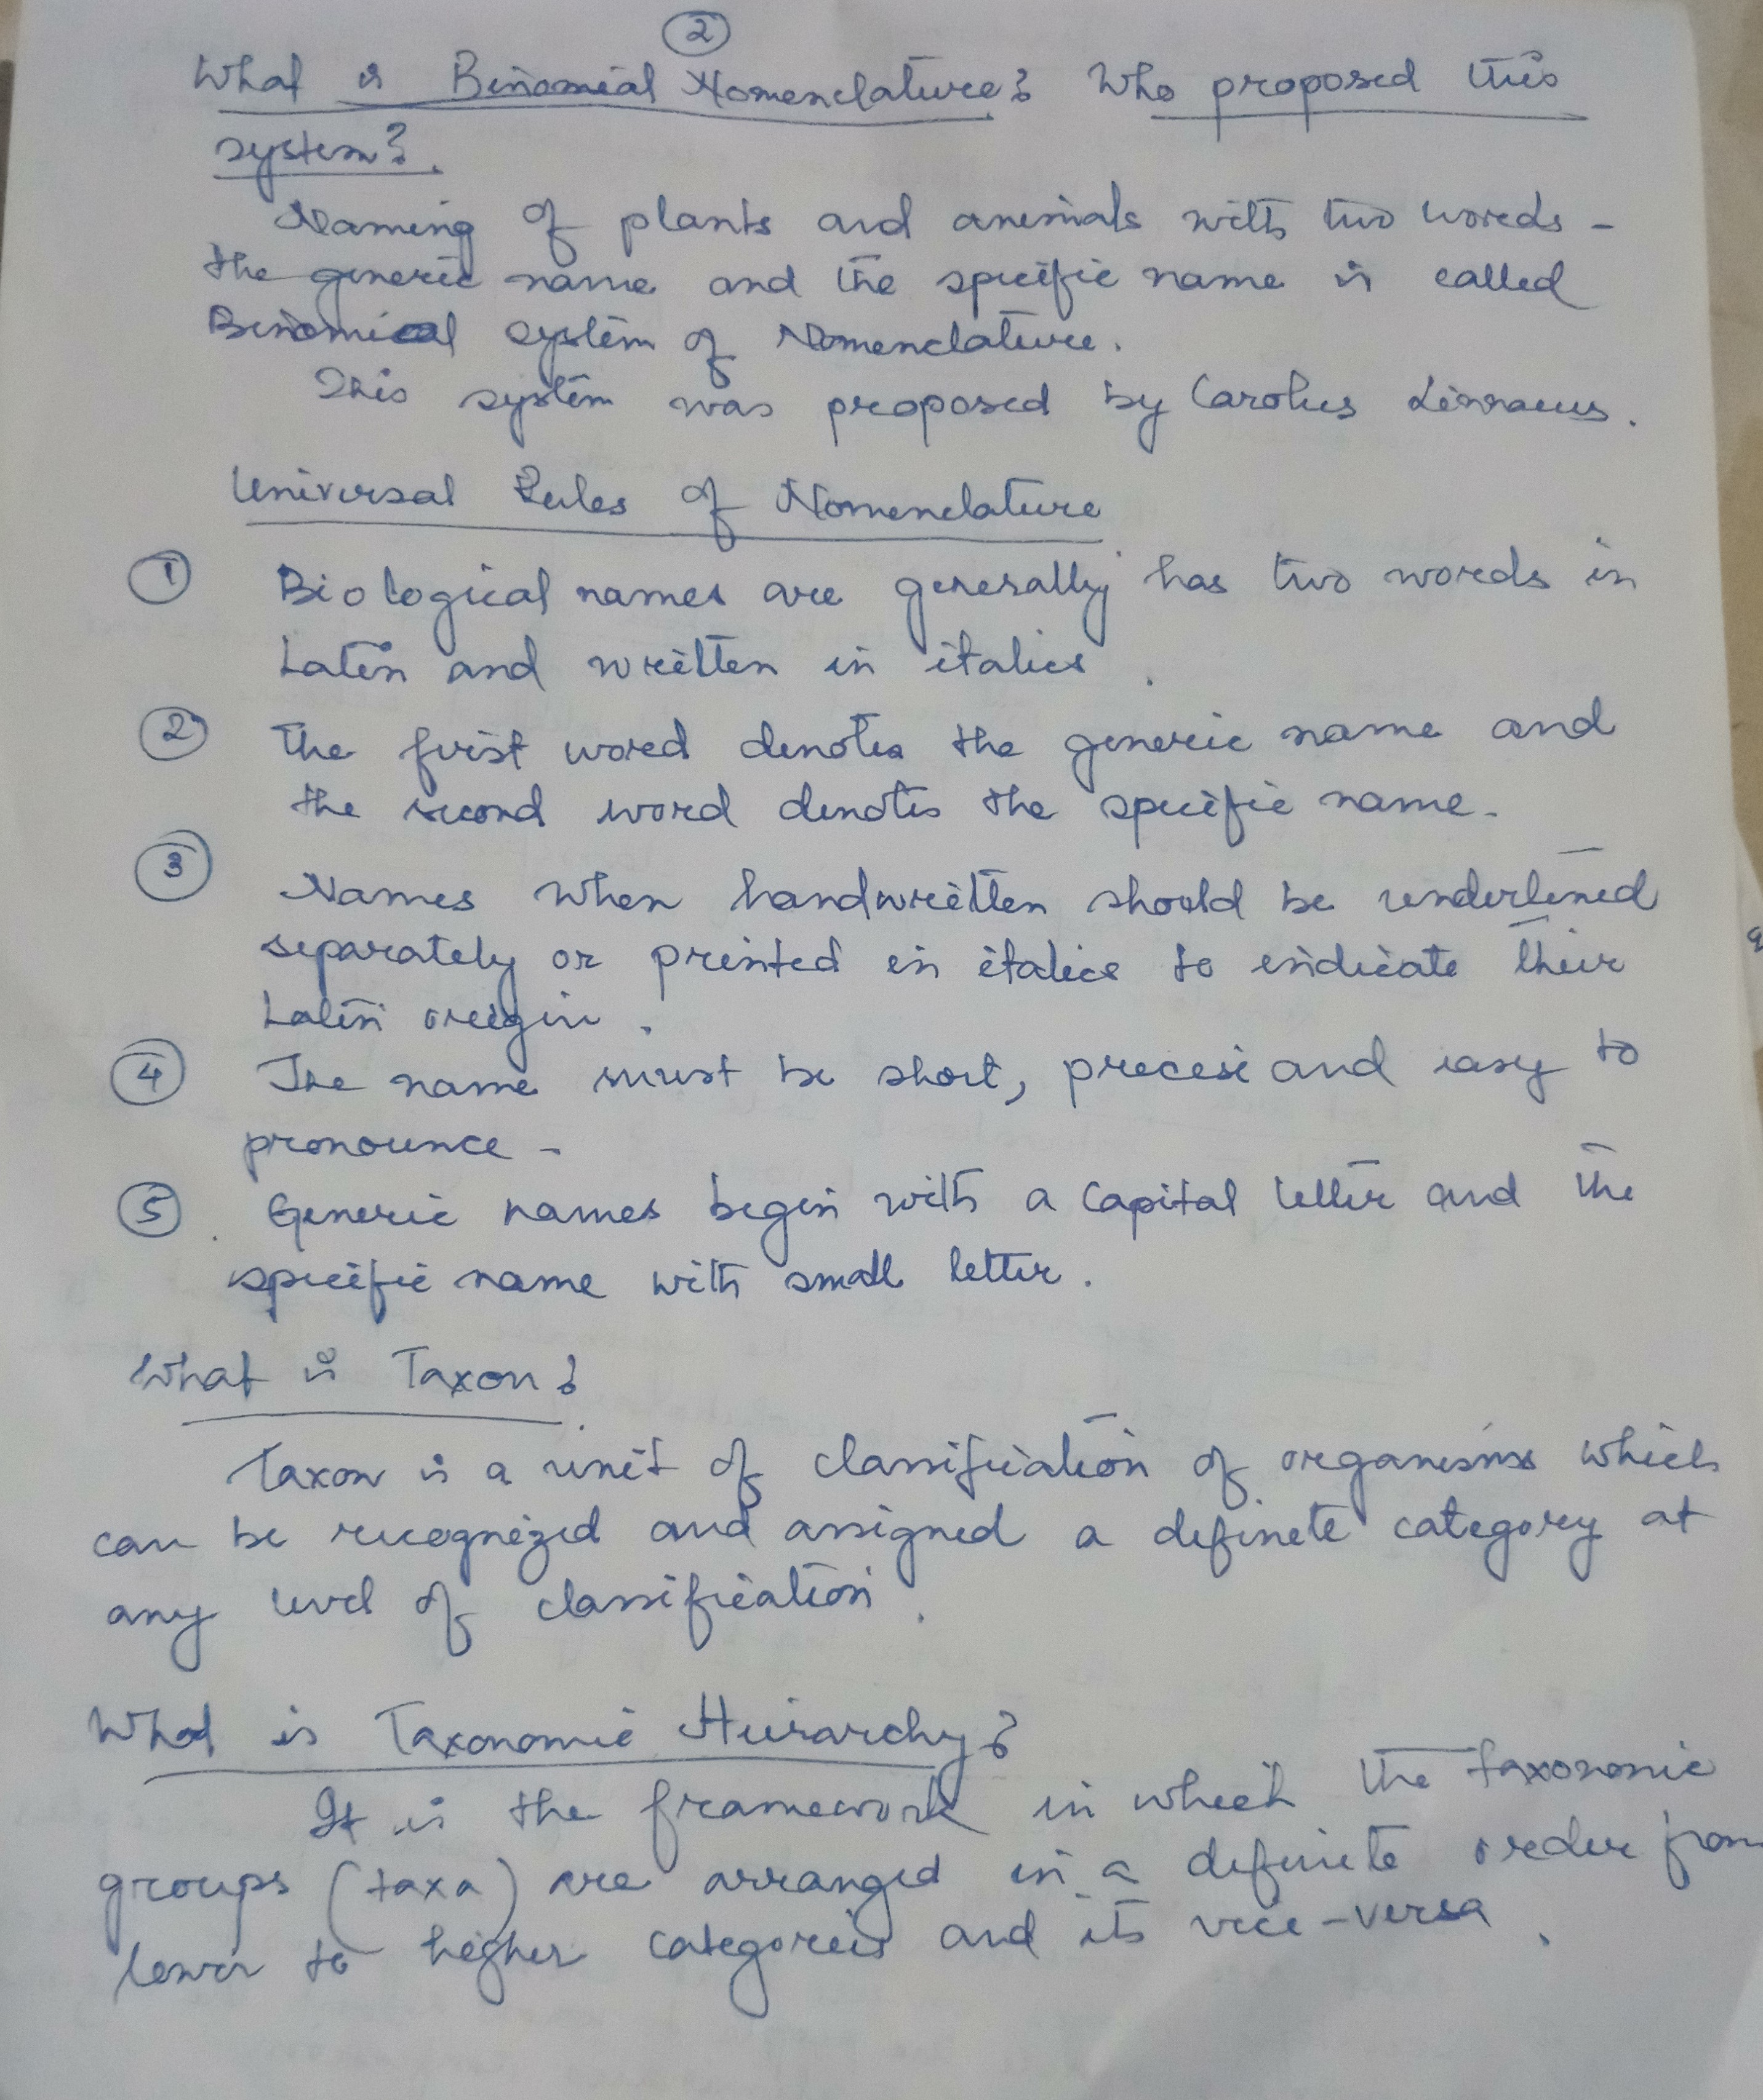 2
What is Binomial Nomenclature? Who proposed this
system?.
Naming of plants and animals with two words -
the generic name and the specific name is called
Binomial system of Nomenclature.
This system was proposed by Carolus Linnaeus.
Universal Rules of Nomenclature
1 Biological names are generally has two words in
Latin and written in italics.
2 The first word denotes the generic name and
the second word denotes the specific name.
3 Names when handwritten should be underlined
separately or printed in italics to indicate their
Latin origin.
4 The name must be short, precise and easy to
pronounce -
5. Generic names begin with a capital letter and the
specific name with small letter.
What is Taxon?
Taxon is a unit of classification of organisms which
can be recognized and assigned a definite category at
any level of classification.
What is Taxonomic Hierarchy?
It is the framework in which the taxonomic
groups (taxa) are arranged in a definite order from
lower to higher categories and its vice-versa.